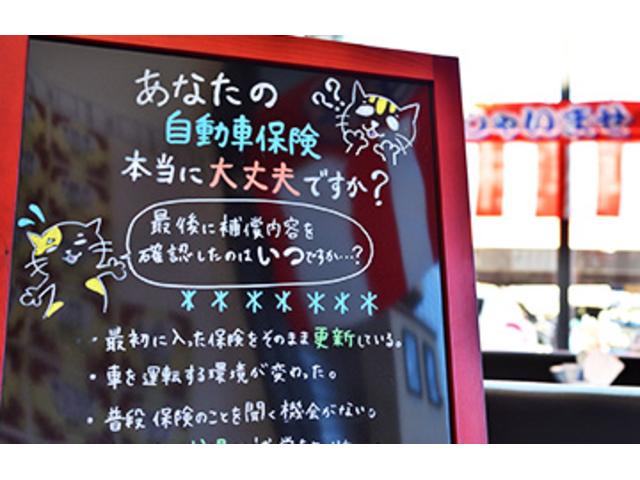 あなたの
自動車保険
本当に大丈夫ですか?
??
最後に補償内容を
確認したのはいつですか…?
・最初に入った保険をそのまま更新している。
・車を運転する環境が変わった。
・普段保険のことを聞く機会がない。
ゃいませ